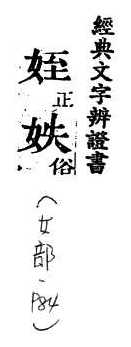 經典文字辨證書
姪正
妷俗
（女部、P84）